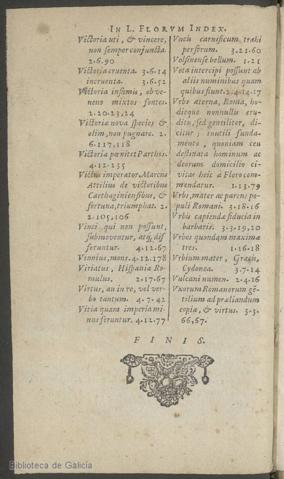 IN L. FLORVM INDEX.
Victoria uti, & vincere,
non semper coniuncta.
2.6.90
Victoria cruenta. 3.6.14
incruenta. 3.6.52
Victoria infamis, ob ve-
neno mixtos fontes.
2.20.23,24
Victoria nova species &
olim, non pugnare. 2.
6.117,118
Victoria pœnitet Parthos.
4.12.235
Victus imperator, Marcus
Atelius de victoribus
Carthaginiensibus, &
fortuna, triumphat. 2.
2.105,106
Vinci qui non possunt,
submoventur, atq; dif
feruntur. 4.12.67
Vennius, mons. 4.12.178
Viriatus, Hispania Ro-
mulus. 2.17.67
Virtus, an in re, vel ver-
bo tantum. 4.7.42
Vitia quam imperia mi-
nus feruntur. 4.12.77
Vncis carnificum trahi
perforum. 3.21.60
Volsinense bellum. 1.21
Vota intercipi possunt ab
aliis numinibus quam
quibus fiunt. 2.4.14.17
Vrbs aterna, Roma, ho-
dieque nonnullis eru-
ditu, sed gentiliter, di-
citur; inutili funda-
mento, quoniam ceu
destinata hominum ac
deorum domicilio ci-
vitas heic á Floro com-
mendatur. 1.13.79
Vrbs, mater ac parens po-
puli Romani. 3.18.16
Vrbis capienda fiducia in
barbaris. 3.3.19,20
Vrbes quondam maxima
tres. 1.16.18
Vrbium mater, Græcis,
Cydonea. 3.7.14
Vulcani numen. 2.4.16
Vxorum Romanorum gē-
tilium ad præliandum
copiæ, & virtus. 3.3.
66,67.
FINIS.
Biblioteca de Galicia